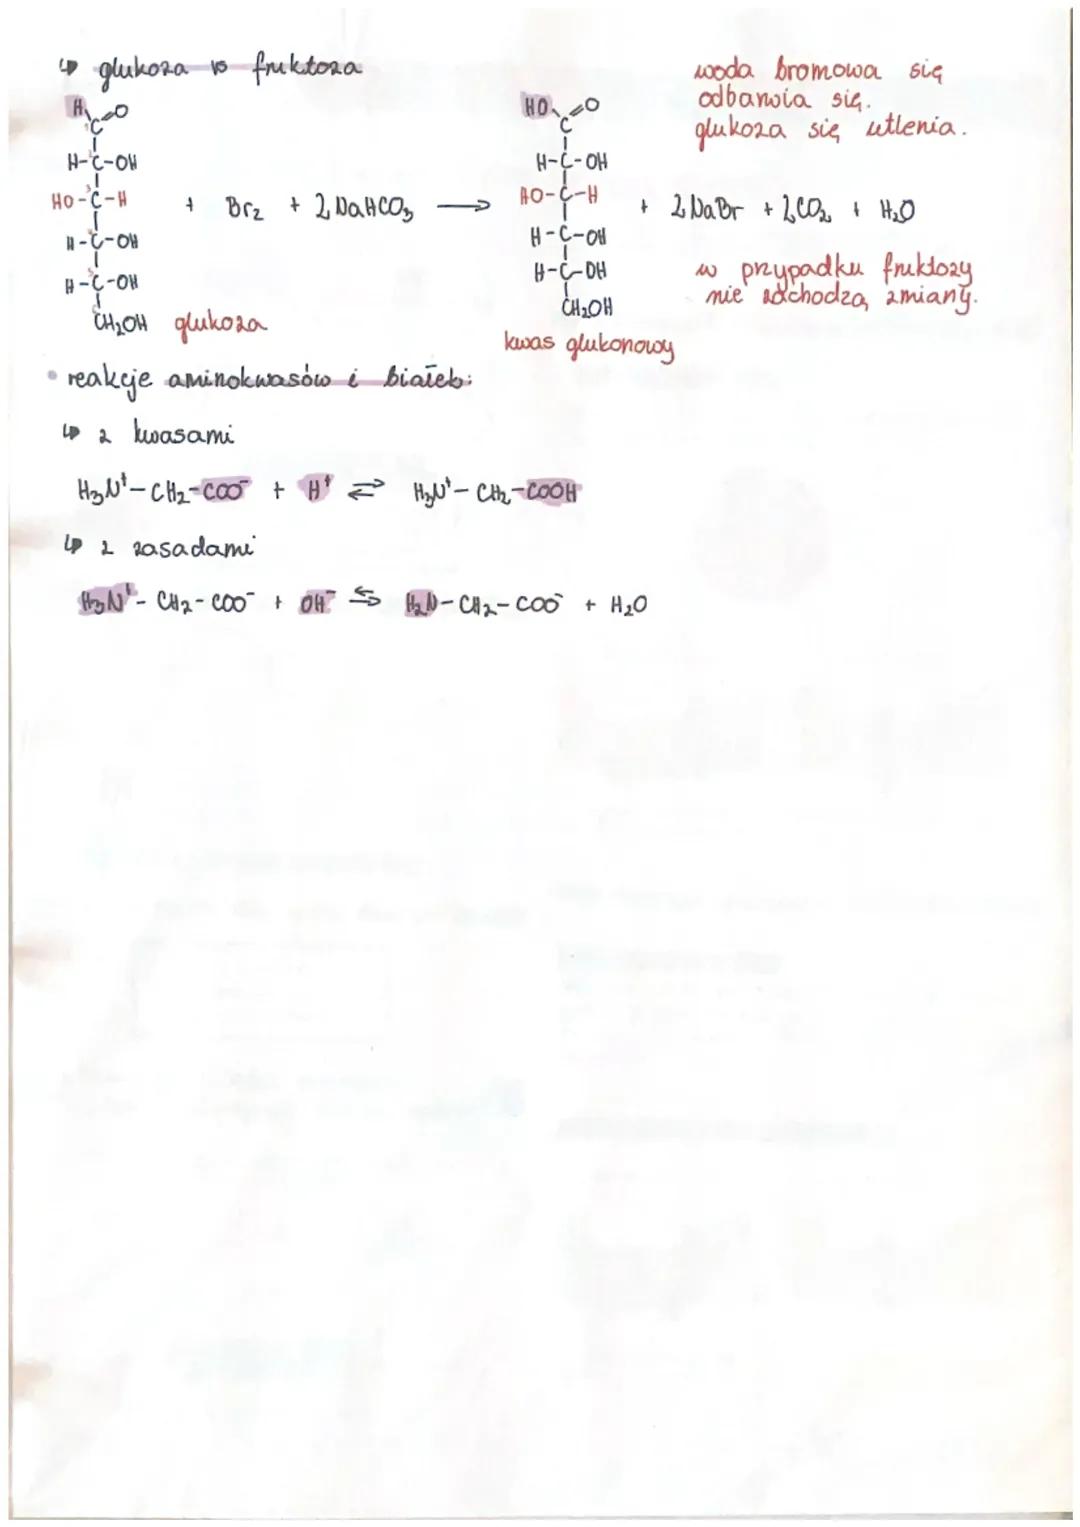 ↳ glukoza vs fruktoza
woda bromowa się
odbarwia się.
glukoza się utlenia.
H O
1 C
H-²C-OH
HO-³C-H
H-C-OH
H-⁵C-OH
CH₂OH glukoza
+ Br₂ + 2 NaHCO₃ ⟶
HO O
C
H-C-OH
HO-C-H
H-C-OH
H-C-OH
CH₂OH
kwas glukonowy
+ 2 NaBr + 2 CO₂ + H₂O
w przypadku fruktozy
nie zachodzą zmiany.
• reakcje aminokwasów i białek:
↳ z kwasami
H₃N⁺-CH₂-COO⁻ + H⁺ ⇄ H₃N⁺-CH₂-COOH
↳ z zasadami
H₃N⁺-CH₂-COO⁻ + OH⁻ ⇆ H₂N-CH₂-COO⁻ + H₂O